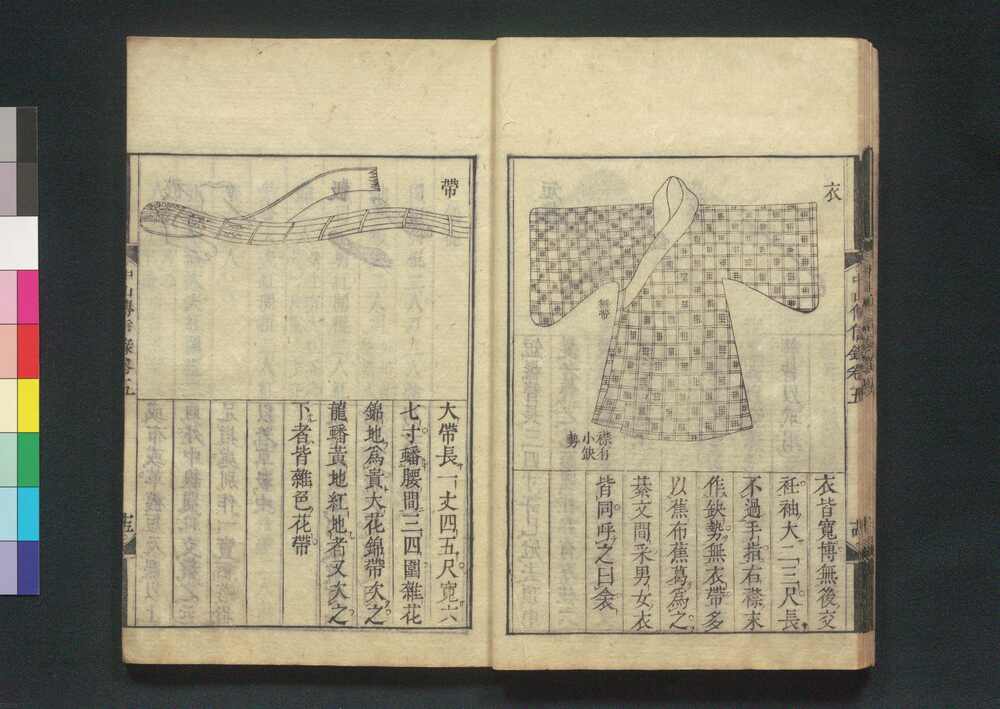 衣
無帶
襟有
小缺
勢
衣皆寬博無後交
衽袖大二三尺長
不過手指右襟末
作缺勢無衣帶多
以蕉布蕉葛為之
棊文間采男女衣
皆同呼之曰衾
中山傳信錄卷五
帶
大帶長一丈四五尺寬六
七寸蟠腰間三四圍雜花
錦地為貴大花錦帶次之
龍蟠黃地紅地者又次之
下者皆雜色花帶
中山傳信錄卷五